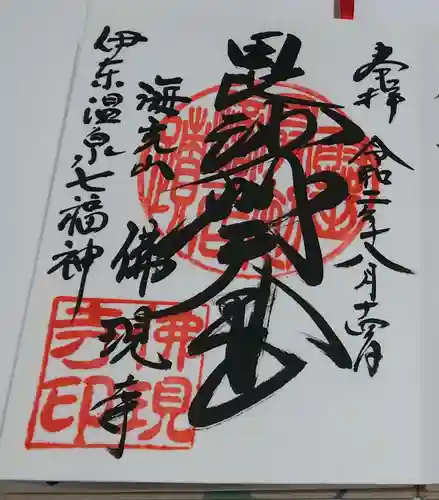 奉拝
令和二年八月十四日
毘沙門天
海光山
佛現寺
伊東温泉七福神
佛現
寺印